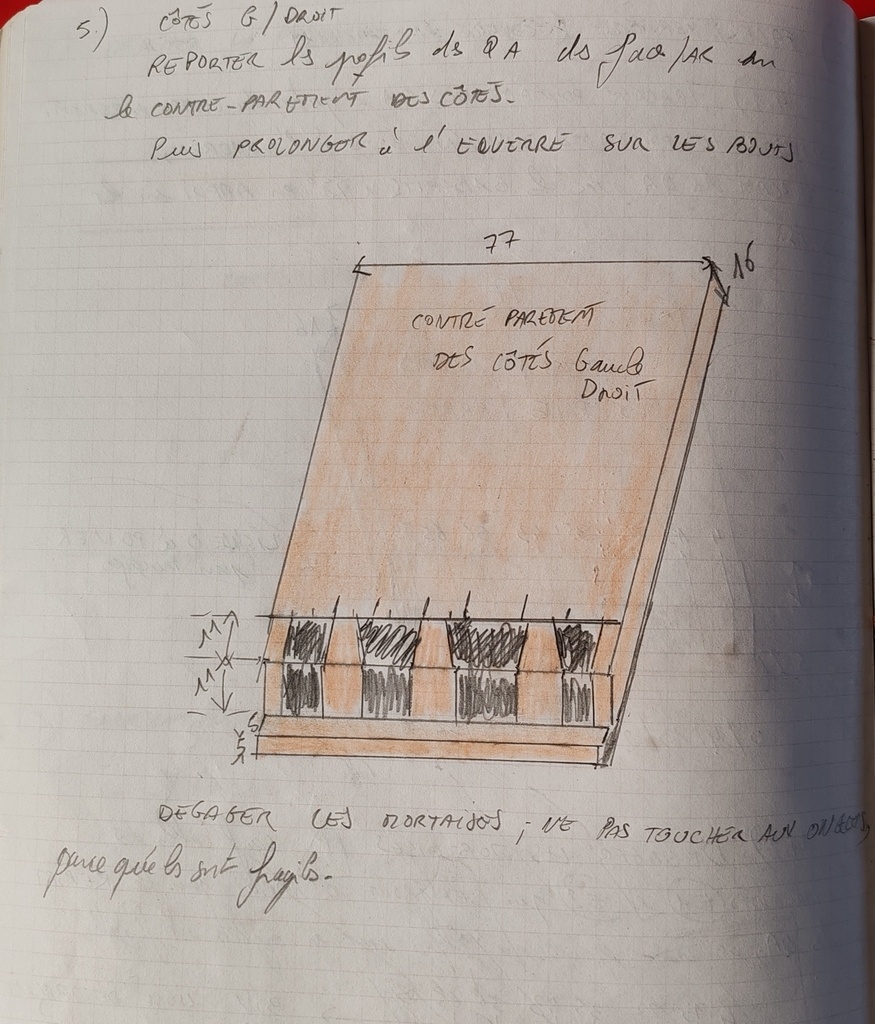 5.) CÔTÉS G/DROIT
REPORTER les profils des QA des face/AR sur
le CONTRE-PAREMENT DES CÔTÉS.
Puis PROLONGER à l'EQUERRE SUR LES BOUTS
77
16
CONTRE PAREMENT
DES CÔTÉS Gauche
Droit
11
11
5
DEGAGER LES MORTAISES ; NE PAS TOUCHER AUX ONGLETS,
parce qu'ils sont fragiles.